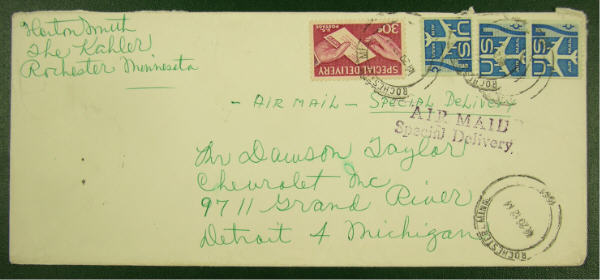 Horton Smith
The Kahler
Rochester Minnesota
30¢
U.S. POSTAGE
SPECIAL DELIVERY
US
US
US
- AIR MAIL - SPECIAL DELIVERY
AIR MAIL
Special Delivery
Mr Dawson Taylor
Chevrolet Inc
9711 Grand River
Detroit 4 Michigan
ROCHESTER, MINN.